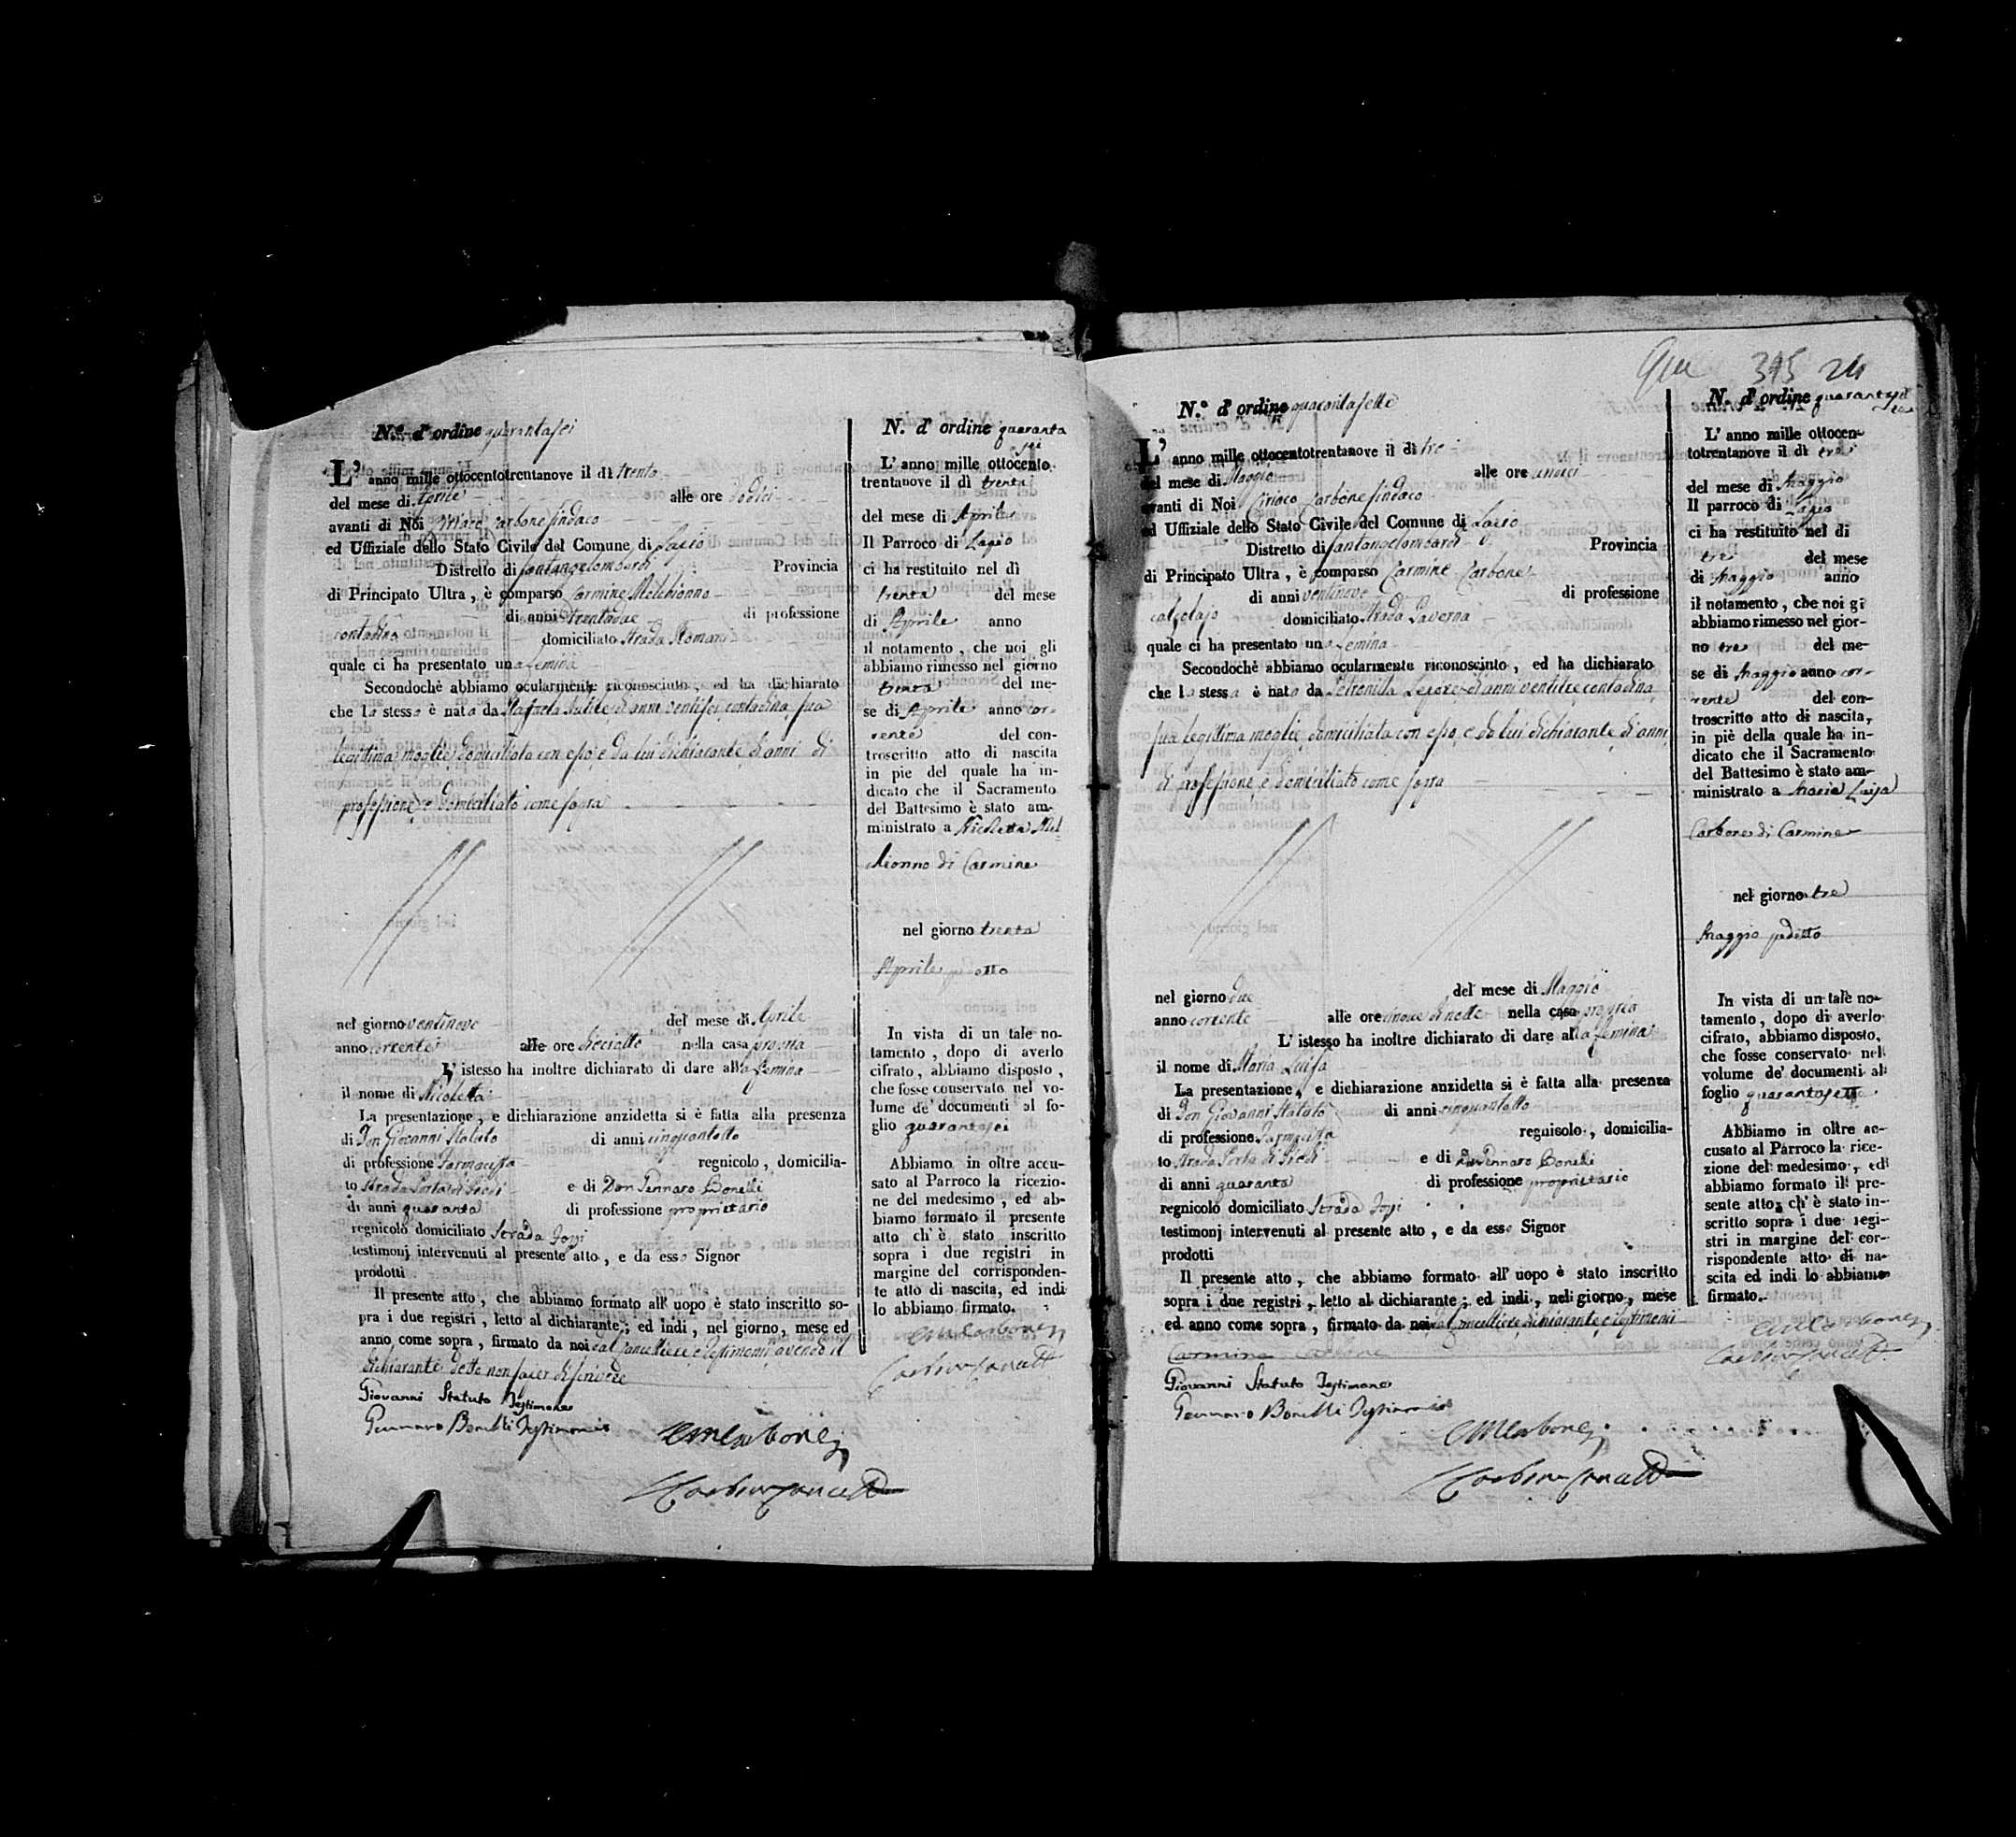 N.° d' ordine quarantasei
L' anno mille ottocentotrentanove il dì trenta
del mese di Aprile alle ore dodici
avanti di Noi Ciriaco Carbone Sindaco
ed Uffiziale dello Stato Civile del Comune di
Distretto di Santangelombardi Provincia
di Principato Ultra, è comparso Carmine Melchionno
di anni trentadue di professione
contadino domiciliato Strada
quale ci ha presentato una femina
Secondochè abbiamo ocularmente riconosciuto, ed ha dichiarato
che la stessa è nata da di anni ventisei contadina sua
legittima moglie domiciliata con esso, e da lui dichiarante di anni di
professione, e domiciliato come sopra
nel giorno ventinove del mese di Aprile
anno corrente alle ore diciotto nella casa propria
L' istesso ha inoltre dichiarato di dare alla femina
il nome di Nicoletta
La presentazione, e dichiarazione anzidetta si è fatta alla presenza
di Don Giovanni Statuto di anni cinquantotto
di professione Farmacista regnicolo, domicilia-
to Strada Porta di e di Don Gennaro Bonelli
di anni quaranta di professione proprietario
regnicolo domiciliato Strada
testimonj intervenuti al presente atto, e da esso Signor
prodotti
Il presente atto, che abbiamo formato all' uopo è stato inscritto so-
pra i due registri, letto al dichiarante; ed indi, nel giorno, mese ed
anno come sopra, firmato da noi dal Cancelliere, e testimonj avendo il
dichiarante detto non saper di scrivere
Giovanni Statuto Testimone
Gennaro Bonelli Testimonio
N. d' ordine quaranta
sei
L' anno mille ottocento
trentanove il dì trenta
del mese di Aprile
Il Parroco di
ci ha restituito nel dì
trenta del mese
di Aprile anno
il notamento, che noi gli
abbiamo rimesso nel giorno
trenta del me-
se di Aprile anno cor-
rente del con-
troscritto atto di nascita
in piè del quale ha in-
dicato che il Sacramento
del Battesimo è stato am-
ministrato a Nicoletta Mel
chionno di Carmine
nel giorno trenta
Aprile
In vista di un tale no-
tamento, dopo di averlo
cifrato, abbiamo disposto,
che fosse conservato nel vo-
lume de' documenti al fo-
glio quarantasei
Abbiamo in oltre accu-
sato al Parroco la ricezio-
ne del medesimo, ed ab-
biamo formato il presente
atto ch' è stato inscritto
sopra i due registri in
margine del corrisponden-
te atto di nascita, ed indi
lo abbiamo firmato.
315 24
N.° d' ordine quarantasette
L' anno mille ottocentotrentanove il dì tre
del mese di Maggio alle ore undici
avanti di Noi Ciriaco Carbone Sindaco
ed Uffiziale dello Stato Civile del Comune di
Distretto di Santangelombardi Provincia
di Principato Ultra, è comparso Carmine Carbone
di anni ventinove di professione
calzolajo domiciliato Strada
quale ci ha presentato una femina
Secondochè abbiamo ocularmente riconosciuto, ed ha dichiarato
che la stessa è nata da Petronilla di anni ventitre contadina
sua legittima moglie, domiciliata con esso, e da lui dichiarante di anni
di professione, e domiciliato come sopra
nel giorno due del mese di Maggio
anno corrente alle ore cinque di notte nella casa propria
L' istesso ha inoltre dichiarato di dare alla femina
il nome di Maria Luisa
La presentazione, e dichiarazione anzidetta si è fatta alla presenza
di Don Giovanni Statuto di anni cinquantotto
di professione Farmacista regnicolo, domicilia-
to Strada Porta di e di Don Gennaro Bonelli
di anni quaranta di professione proprietario
regnicolo domiciliato Strada
testimonj intervenuti al presente atto, e da esso Signor
prodotti
Il presente atto, che abbiamo formato all' uopo è stato inscritto
sopra i due registri, letto al dichiarante; ed indi, nel giorno, mese
ed anno come sopra, firmato da noi dal Cancelliere, dichiarante, e testimonj
Carmine Carbone
Giovanni Statuto Testimone
Gennaro Bonelli Testimonio
N. d' ordine
L' anno mille ottocen-
totrentanove il dì tre
del mese di Maggio
Il parroco di
ci ha restituito nel dì
tre del mese
di Maggio anno
il notamento, che noi gi
abbiamo rimesso nel gior-
no tre del me-
se di Maggio anno cor-
rente del con-
troscritto atto di nascita,
in piè della quale ha in-
dicato che il Sacramento
del Battesimo è stato am-
ministrato a Maria Luisa
Carbone di Carmine
nel giorno tre
Maggio
In vista di un tale no-
tamento, dopo di averlo
cifrato, abbiamo disposto,
che fosse conservato nel
volume de' documenti al
foglio quarantasette
Abbiamo in oltre ac-
cusato al Parroco la rice-
zione del medesimo, ed
abbiamo formato il pre-
sente atto, ch' è stato in-
scritto sopra i due regi-
stri in margine del cor-
rispondente atto di na-
scita ed indi lo abbiamo
firmato.